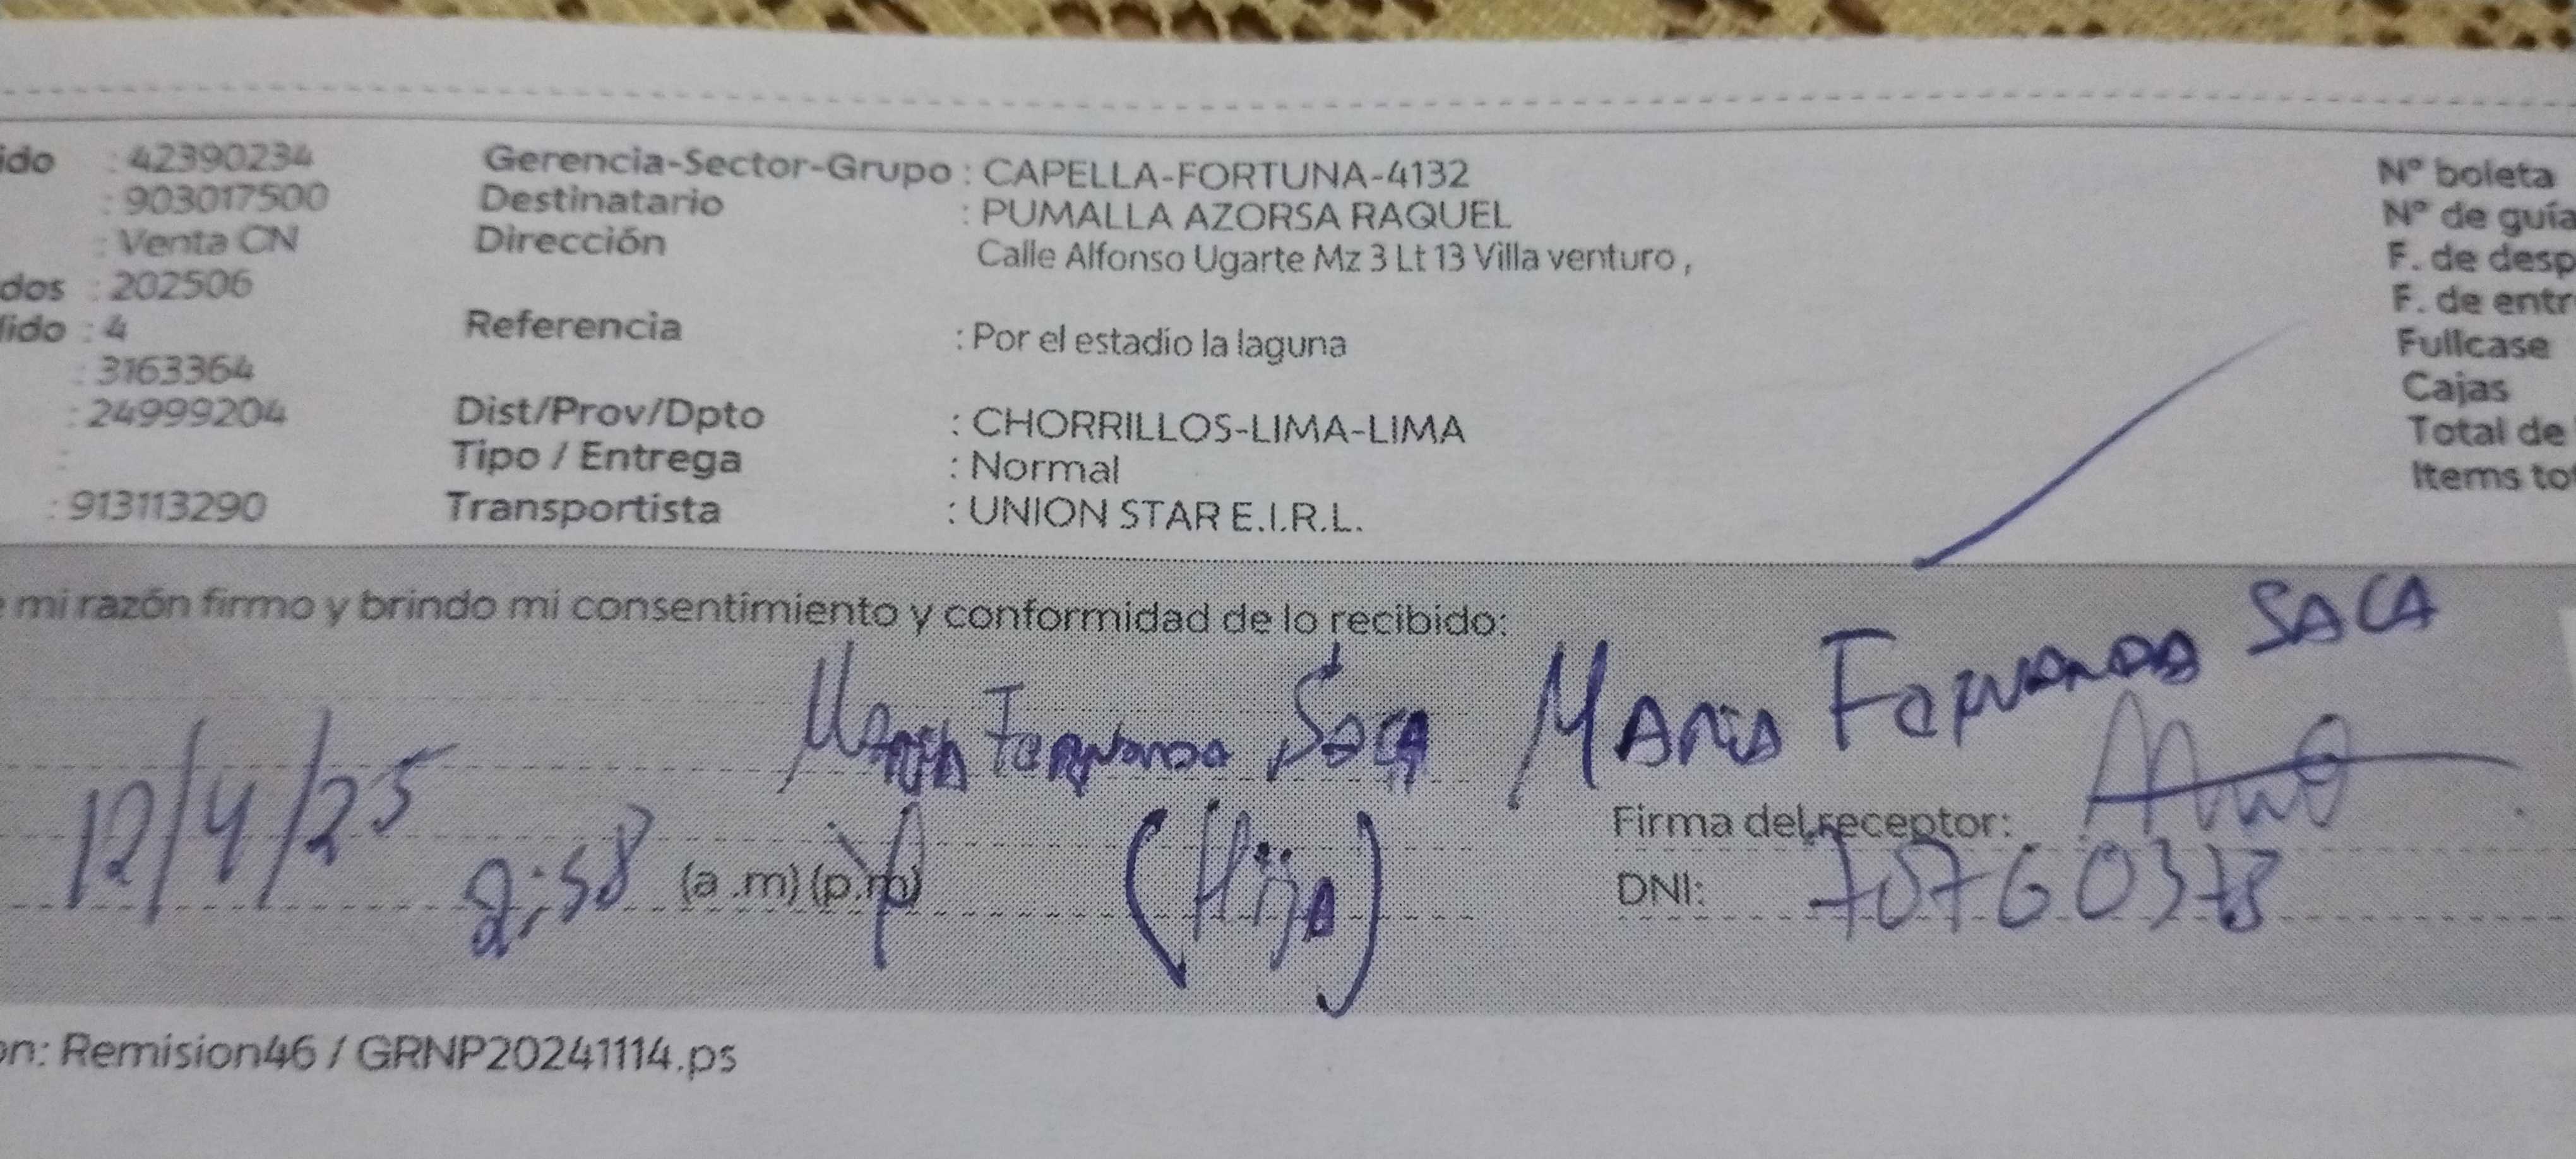 ido : 42390234 Gerencia-Sector-Grupo : CAPELLA-FORTUNA-4132 N° boleta
: 903017500 Destinatario : PUMALLA AZORSA RAQUEL N° de guía
: Venta CN Dirección Calle Alfonso Ugarte Mz 3 Lt 13 Villa venturo , F. de desp
dos : 202506 F. de entr
lido : 4 Referencia : Por el estadio la laguna Fullcase
: 3163364 Cajas
: 24999204 Dist/Prov/Dpto : CHORRILLOS-LIMA-LIMA Total de
: Tipo / Entrega : Normal Items tot
: 913113290 Transportista : UNION STAR E.I.R.L.
e mi razón firmo y brindo mi consentimiento y conformidad de lo recibido:
Maria Fernanda Saca MARIA FERNANDA SACA
12/4/25 Firma del receptor:
2:58 (a .m) (p.m) (Hija) DNI: 70760378
on: Remision46 / GRNP20241114.ps